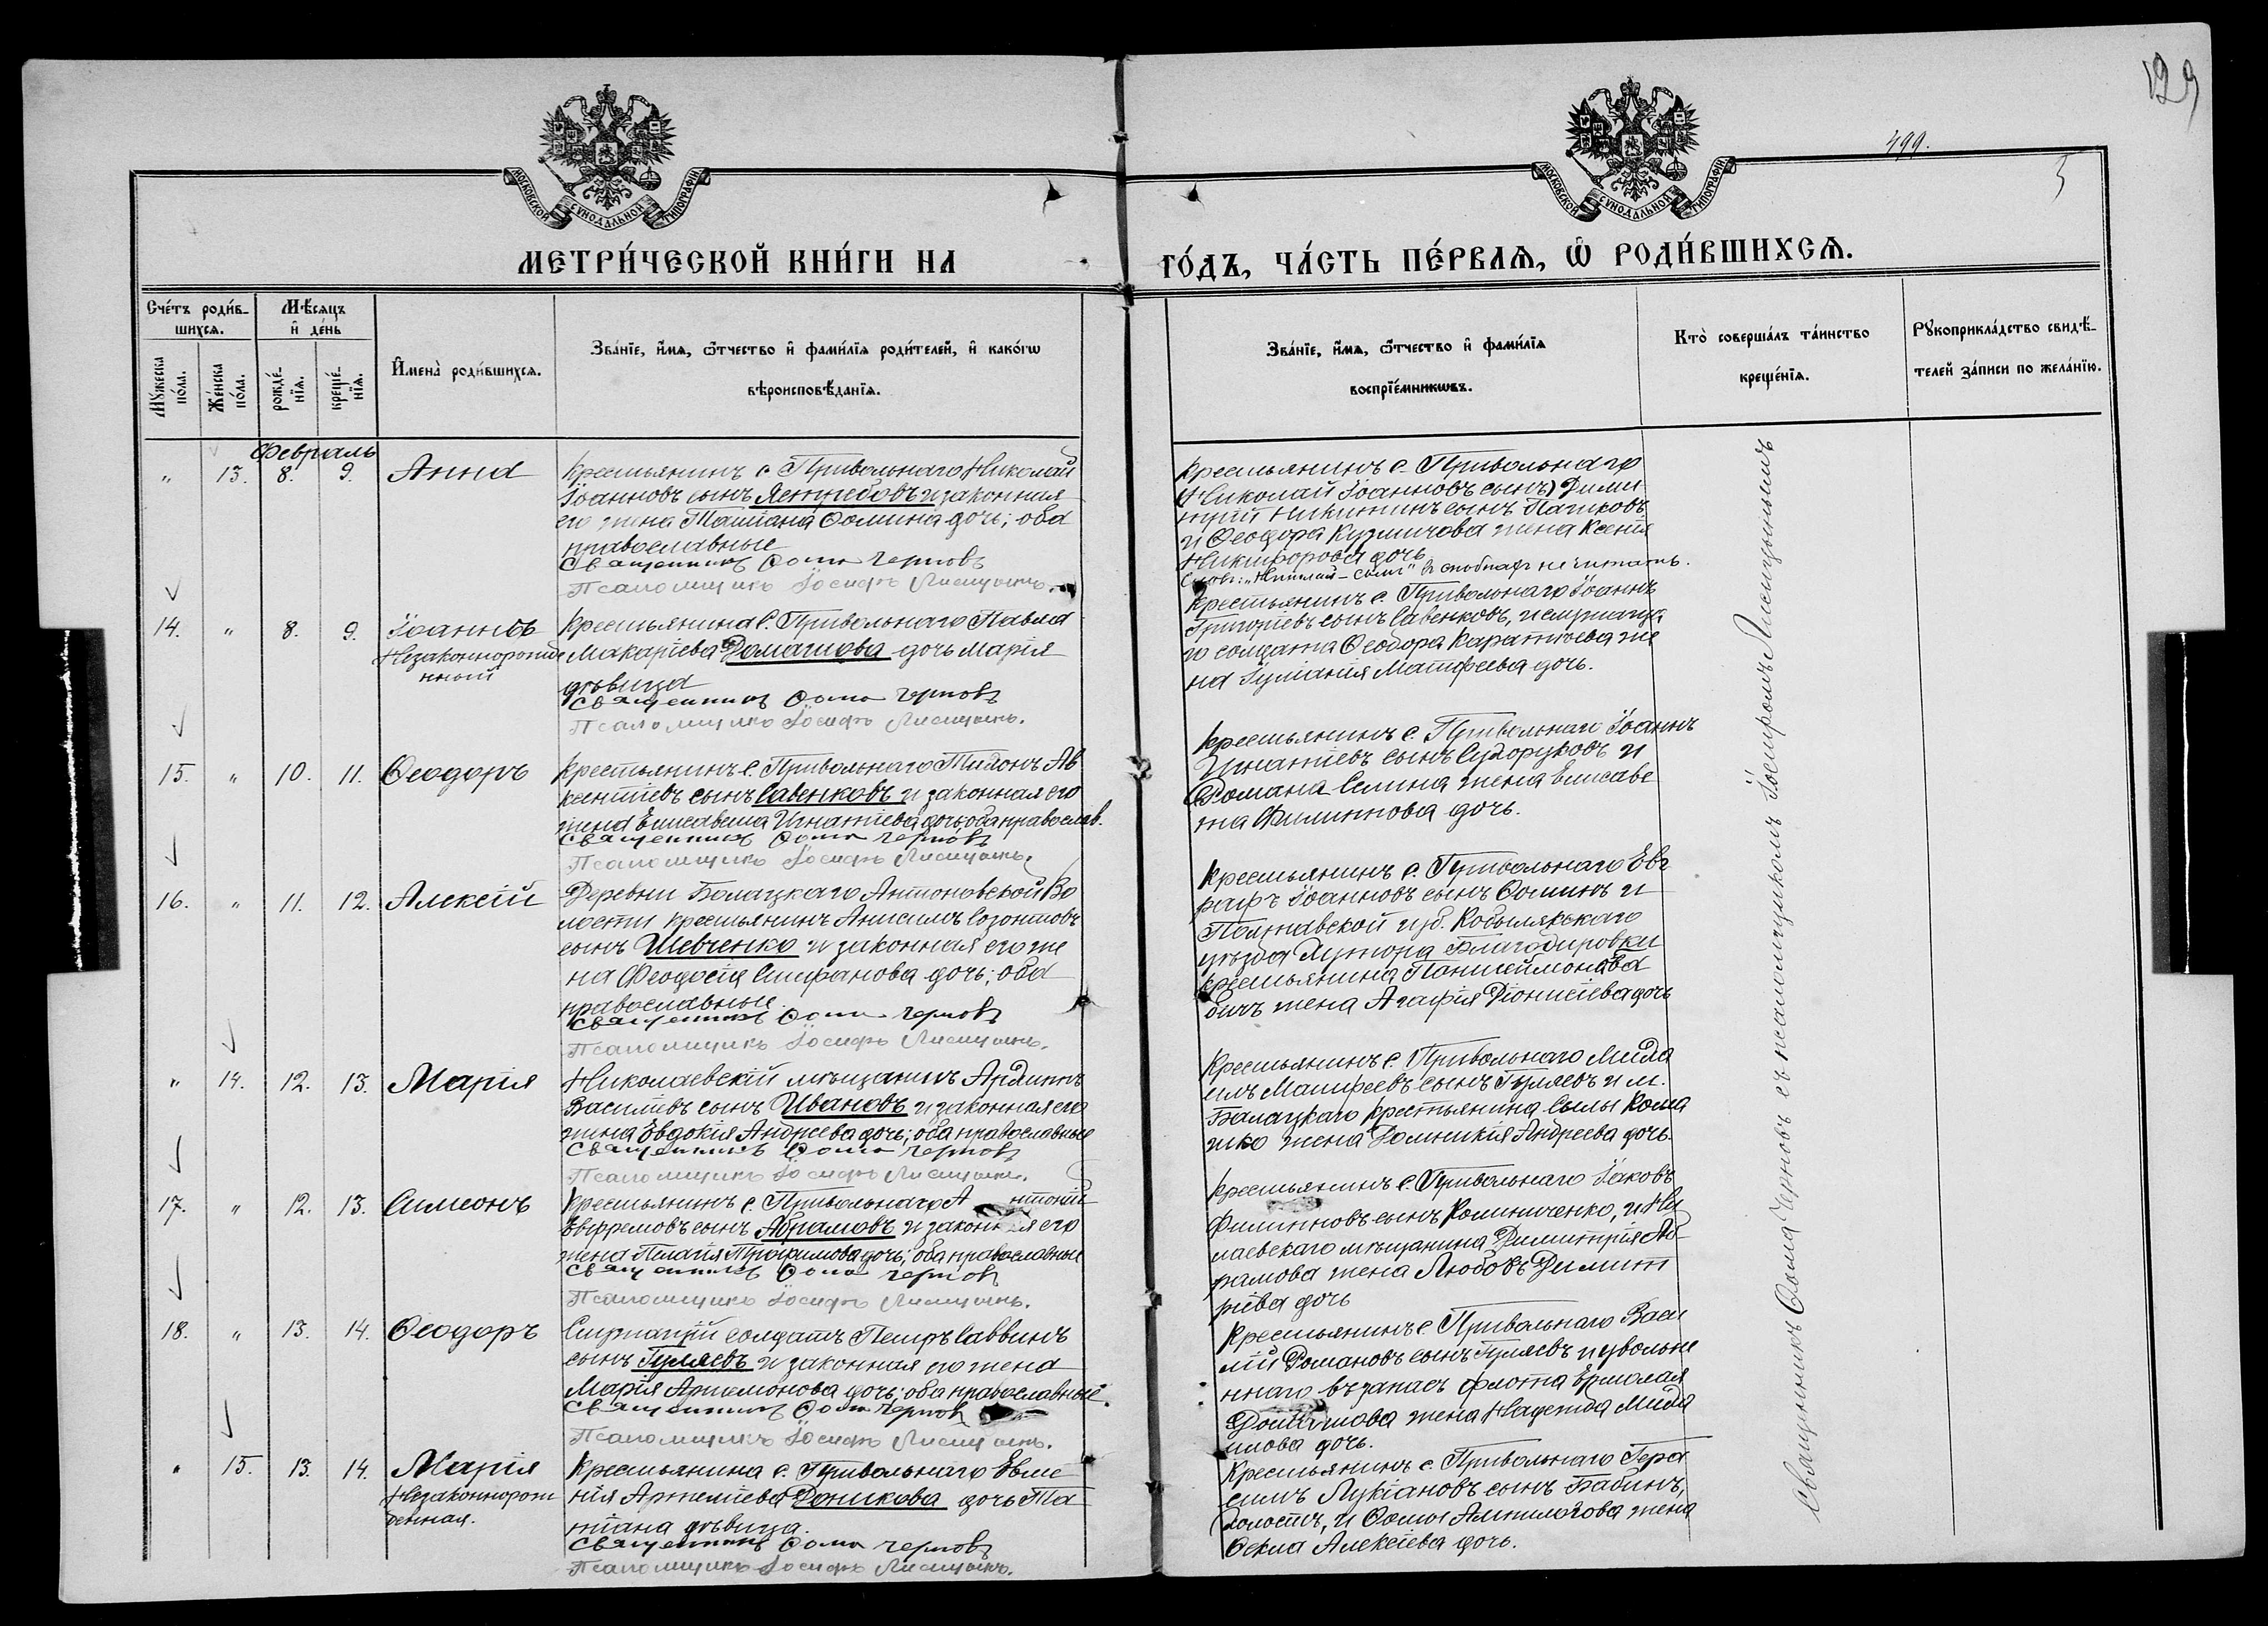 129
499.
5
МОСКОВСКОЙ СѴНОДАЛЬНОЙ ТИПОГРАФІИ
МОСКОВСКОЙ СѴНОДАЛЬНОЙ ТИПОГРАФІИ
МЕТРИ́ЧЕСКОЙ КНИ́ГИ НА
ГО́ДЪ, ЧА́СТЬ ПЕ́РВАѦ, Ѽ РОДИ́ВШИХСѦ.
Сче́тъ роди́в-
шихсѧ.
Мѣ́сѧцъ
и҆ де́нь
Мꙋ́жеска по́ла.
Же́нска по́ла.
рожде́-
нїѧ.
креще́-
нїѧ.
И҆мена̀ роди́вшихсѧ.
Зва́нїе, и҆́мѧ, ѻ҆́тчество и҆ фами́лїѧ роди́телей, и҆ како́гѡ
вѣроисповѣ́данїѧ.
Зва́нїе, и҆́мѧ, ѻ҆́тчество и҆ фами́лїѧ
воспрїе́мникѡвъ.
Кто̀ соверша́лъ та́инство
креще́нїѧ.
Рꙋкоприкла́дство свидѣ́-
телей за́писи по жела́нїю.
Февраль
" 13. 8. 9. Анна
Крестьянинъ с. Привольнаго Николай
Іоанновъ сынъ и законная
его жена Татіана Ѳомина дочь; оба
православные
Священникъ Ѳома Черновъ
Псаломщикъ Іосифъ Лисицынъ.
Крестьянинъ с. Привольнаго
(Николай Іоанновъ сынъ) Дими
трій Никитинъ сынъ Пашковъ
и Ѳеодора Кузмичова жена Ксенія
Никифорова дочь
Слова: „Николай – сынъ" въ скобкахъ не читать.
14. " 8. 9. Іоаннъ
Незаконнорожде
нный
Крестьянина с. Привольнаго Павла
Макаріева Домашова дочь Марія
дѣвица
Священникъ Ѳома Черновъ
Псаломщикъ Іосифъ Лисицынъ.
Крестьянинъ с. Привольнаго Іоаннъ
Григоріевъ сынъ Савенковъ, и служаща
го солдата Ѳеодора Каратѣева же
на Іуліанія Матѳеева дочь.
15. " 10. 11. Ѳеодоръ
Крестьянинъ с. Привольнаго Тихонъ Ав
ксентіевъ сынъ Савенковъ и законная его
жена Елисавета Игнатіева дочь, оба православ.
Священникъ Ѳома Черновъ
Псаломщикъ Іосифъ Лисицынъ.
Крестьянинъ с. Привольнаго Іоаннъ
Игнатіевъ сынъ Сухоруковъ и
Романа Селина жена Елисаве
та Филиппова дочь.
16. " 11. 12. Алексій
Деревни Балацкаго Антоновской Во
лости крестьянинъ Анисимъ Созонтовъ
сынъ Шевченко и законная его же
на Ѳеодосія Стефанова дочь; оба
православные.
Священникъ Ѳома Черновъ
Псаломщикъ Іосифъ Лисицынъ.
Крестьянинъ с. Привольнаго Евг
рафъ Іоанновъ сынъ Ѳоминъ и
Полтавской губ. Кобылякскаго
уѣзда Хутора
крестьянина
жена Агафія Діонисіева дочь
" 14. 12. 13. Марія
Николаевскій мѣщанинъ
Василіевъ сынъ Ивановъ и законная его
жена Евдокія Андреева дочь; оба православные
Священникъ Ѳома Черновъ
Псаломщикъ Іосифъ Лисицынъ.
Крестьянинъ с. Привольнаго Миха
илъ Матѳеевъ сынъ Гуляевъ и м.
Балацкаго крестьянина Сылы Кома
шко жена Домникія Андреева дочь.
17. " 12. 13. Симеонъ
Крестьянинъ с. Привольнаго Антоній
Евфремовъ сынъ Абрамовъ и законная его
жена Пелагія Трофимова дочь; оба православные
Священникъ Ѳома Черновъ
Псаломщикъ Іосифъ Лисицынъ.
Крестьянинъ с. Привольнаго Іаковъ
Филипповъ сынъ Колиниченко, и Ни
лаевскаго мѣщанина Димитрія Аб-
рамова жена Любовь Димит
ріева дочь
18. " 13. 14. Ѳеодоръ
Служащій солдатъ Петръ Саввинъ
сынъ Гуляевъ и законная его жена
Марія Артемонова дочь; оба православные.
Священникъ Ѳома Черновъ
Псаломщикъ Іосифъ Лисицынъ.
Крестьянинъ с. Привольнаго Васи
лій Романовъ сынъ Гуляевъ и уволье
ннаго въ запасъ флота Ермолая
Домашова жена Надежда Миха
илова дочь.
" 15. 13. 14. Марія
Незаконнорож
денная.
Крестьянина с. Привольнаго Евме
нія Артеміева Доникова дочь Та
тіана дѣвица.
Священникъ Ѳома Черновъ
Псаломщикъ Іосифъ Лисицынъ.
Крестьянинъ с. Привольнаго Гера
симъ Лукіановъ сынъ Бабинъ,
холостъ, и Ѳомы жена
Ѳекла Алексіева дочь.
Священникъ Ѳома Черновъ съ псаломщикомъ Іосифомъ Лисицынымъ